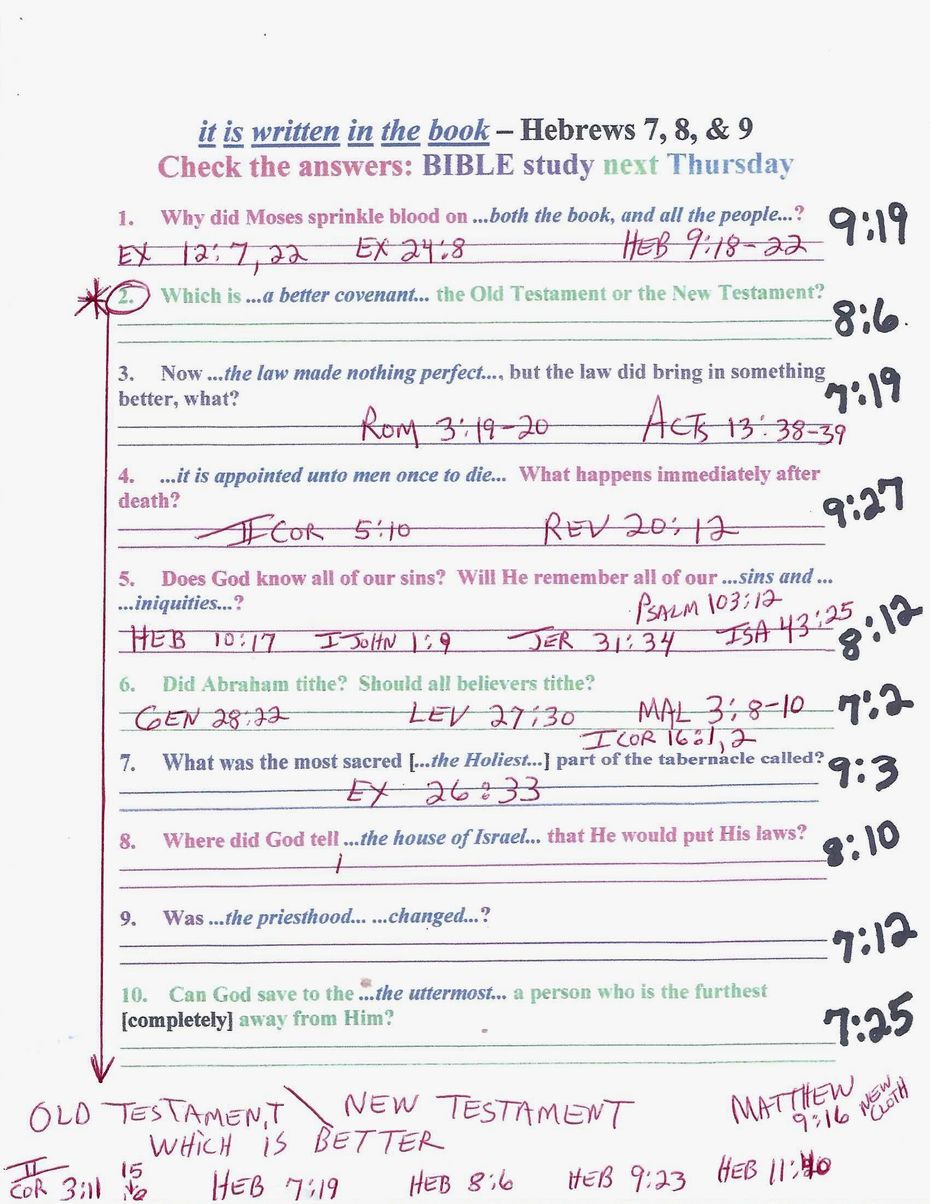 it is written in the book – Hebrews 7, 8, & 9
Check the answers: BIBLE study next Thursday
1. Why did Moses sprinkle blood on ...both the book, and all the people...? 9:19
EX 12:7,22 EX 24:8 HEB 9:18-22
2. Which is ...a better covenant... the Old Testament or the New Testament?
8:6.
3. Now ...the law made nothing perfect..., but the law did bring in something
better, what? 7:19
ROM 3:19-20 ACTS 13:38-39
4. ...it is appointed unto men once to die... What happens immediately after
death? 9:27
II COR 5:10 REV 20:12
5. Does God know all of our sins? Will He remember all of our ...sins and ...
...iniquities...? PSALM 103:12
HEB 10:17 I JOHN 1:9 JER 31:34 ISA 43:25 8:12
6. Did Abraham tithe? Should all believers tithe?
GEN 28:22 LEV 27:30 MAL 3:8-10 7:2
I COR 16:1,2
7. What was the most sacred [...the Holiest...] part of the tabernacle called? 9:3
EX 26:33
8. Where did God tell ...the house of Israel... that He would put His laws? 8:10
9. Was ...the priesthood... ...changed...?
7:12
10. Can God save to the ...the uttermost... a person who is the furthest
[completely] away from Him? 7:25
OLD TESTAMENT \ NEW TESTAMENT MATTHEW
9:16 NEW CLOTH
WHICH IS BETTER
II COR 3:11 15 16 HEB 7:19 HEB 8:6 HEB 9:23 HEB 11:40